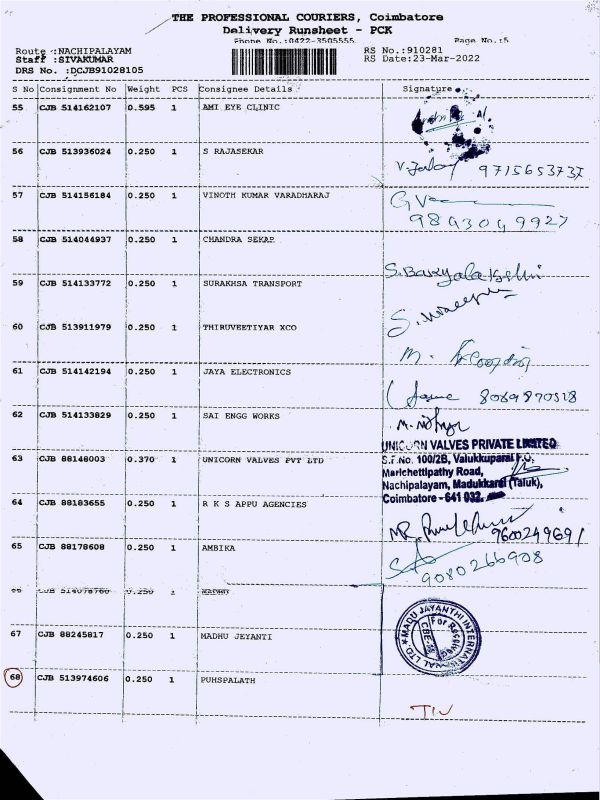 THE PROFESSIONAL COURIERS, Coimbatore
Delivery Runsheet - PCK
Phone No.:0422-3505555 Page No.:5
Route :NACHIPALAYAM RS No.:910281
Staff :SIVAKUMAR RS Date:23-Mar-2022
DRS No. :DCJB91028105
S No Consignment No Weight PCS Consignee Details Signature
55 CJB 514162107 0.595 1 AMI EYE CLINIC
56 CJB 513936024 0.250 1 S RAJASEKAR
9715653737
57 CJB 514156184 0.250 1 VINOTH KUMAR VARADHARAJ
9843049927
58 CJB 514044937 0.250 1 CHANDRA SEKAR
59 CJB 514133772 0.250 1 SURAKHSA TRANSPORT
60 CJB 513911979 0.250 1 THIRUVEETIYAR XCO
61 CJB 514142194 0.250 1 JAYA ELECTRONICS
62 CJB 514133829 0.250 1 SAI ENGG WORKS
UNICORN VALVES PRIVATE LIMITED
63 CJB 88148003 0.370 1 UNICORN VALVES PVT LTD S.F.No. 100/2B, Valukkuparai P.O.
Marichettipathy Road,
Nachipalayam, Madukkarai (Taluk),
Coimbatore - 641 032.
64 CJB 88183655 0.250 1 R K S APPU AGENCIES
9600249691
65 CJB 88178608 0.250 1 AMBIKA
9080266908
66 CJB 514078760 0.250
67 CJB 88245817 0.250 1 MADHU JEYANTI MADU JAYANTHI INTERNATIONAL LTD
68 CJB 513974606 0.250 1 PUHSPALATH